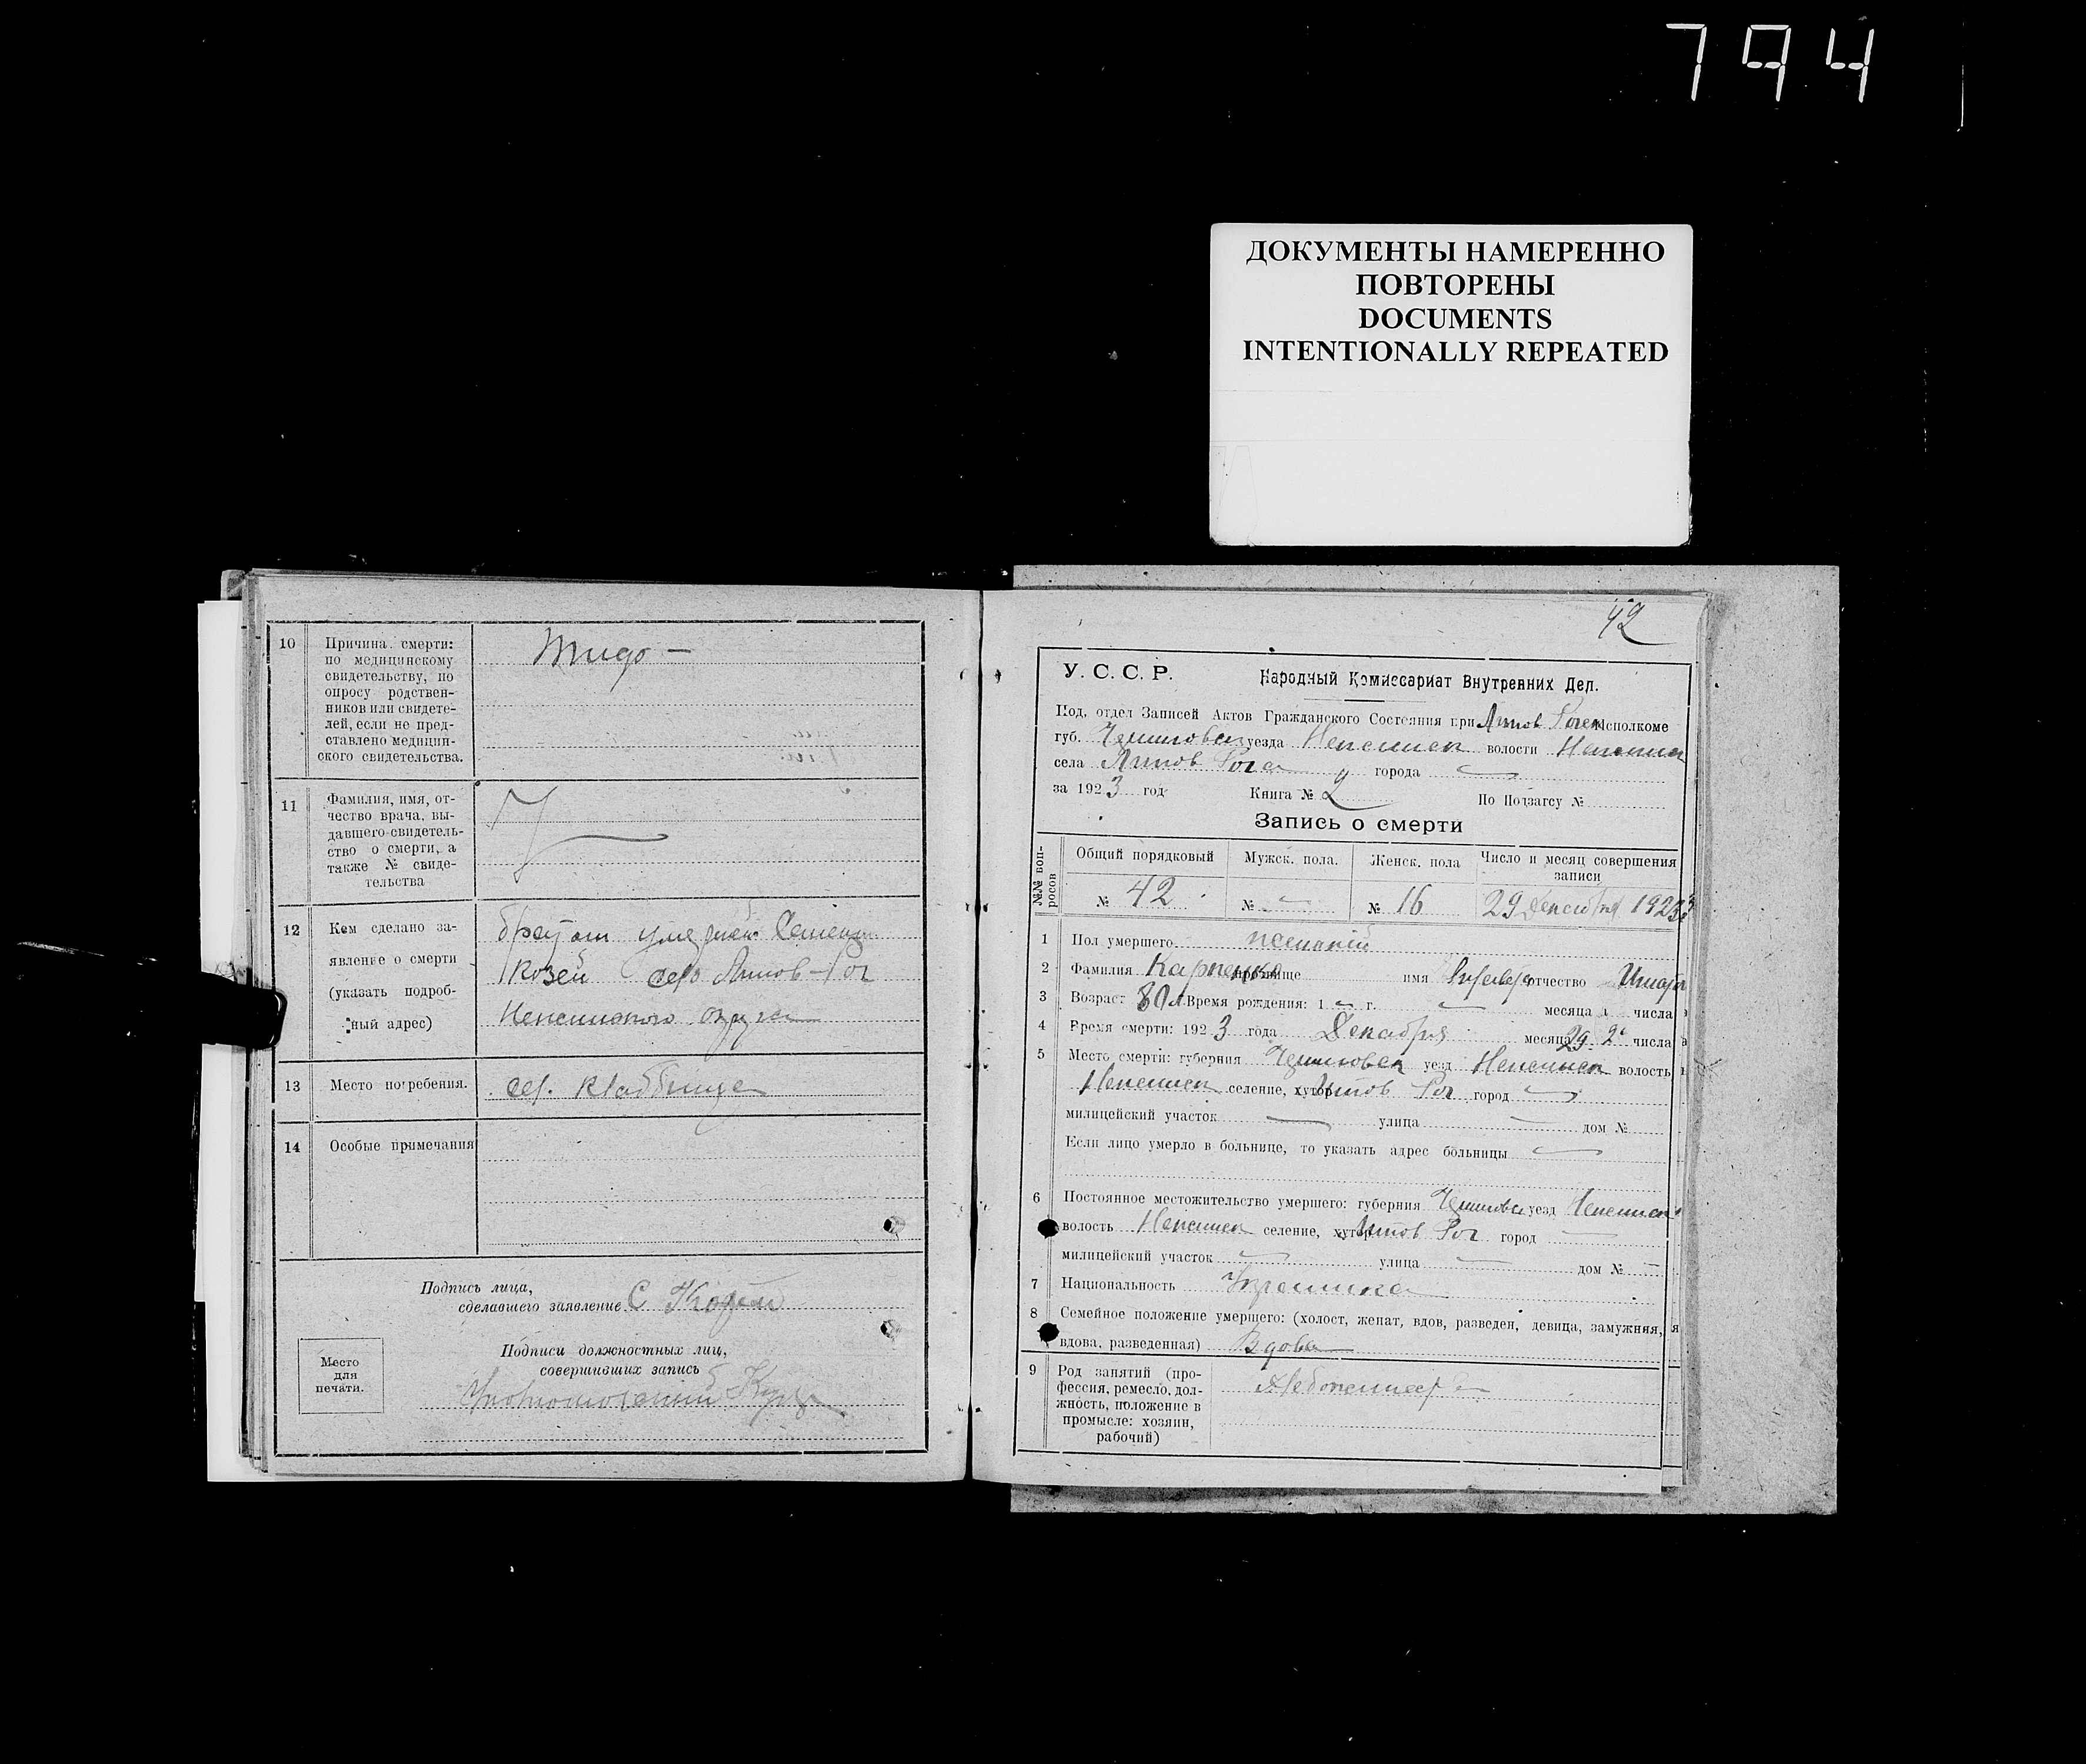 794
ДОКУМЕНТЫ НАМЕРЕННО
ПОВТОРЕНЫ
DOCUMENTS
INTENTIONALLY REPEATED
10 Причина смерти:
по медицинскому
свидетельству, по
опросу родствен-
ников или свидете-
лей, если не пред-
ставлено медицин-
ского свидетельства.
11 Фамилия, имя, от-
чество врача, вы-
давшего свидетель-
ство о смерти, а
также № свиде-
тельства
12 Кем сделано за-
явление о смерти
(указать подроб-
ный адрес)
братом Семеном
Козел село Липов-Рог
округа
13 Место погребения.
14 Особые примечания
Подпись лица,
сделавшего заявление С
Место
для
печати.
Подписи должностных лиц,
совершивших запись
42
У. С. С. Р. Народный Комиссариат Внутренних Дел.
Под. отдел Записей Актов Гражданского Состояния при Липов Исполкоме
губ. уезда волости
села Липов Рога города
за 1923 год Книга № 2 По Подзагсу №
Запись о смерти
№№ воп-
росов
Общий порядковый Мужск. пола. Женск. пола Число и месяц совершения
записи
№ 42 № № 16 29 Декабря 1923
1 Пол умершего женский
2 Фамилия Карпенко прозвище имя отчество
3 Возраст 80 л Время рождения: 1 г. месяца числа
4 Время смерти: 1923 года Декабря месяца 29 числа
5 Место смерти: губерния уезд волость
селение, хутор Липов Рог город
милицейский участок улица дом №
Если лицо умерло в больнице, то указать адрес больницы
6 Постоянное местожительство умершего: губерния уезд
волость селение, хутор Липов Рог город
милицейский участок улица дом №
7 Национальность Украинка
8 Семейное положение умершего: (холост, женат, вдов, разведен, девица, замужняя,
вдова, разведенная) Вдова
9 Род занятий (про-
фессия, ремесло, дол-
жность, положение в
промысле: хозяин,
рабочий)